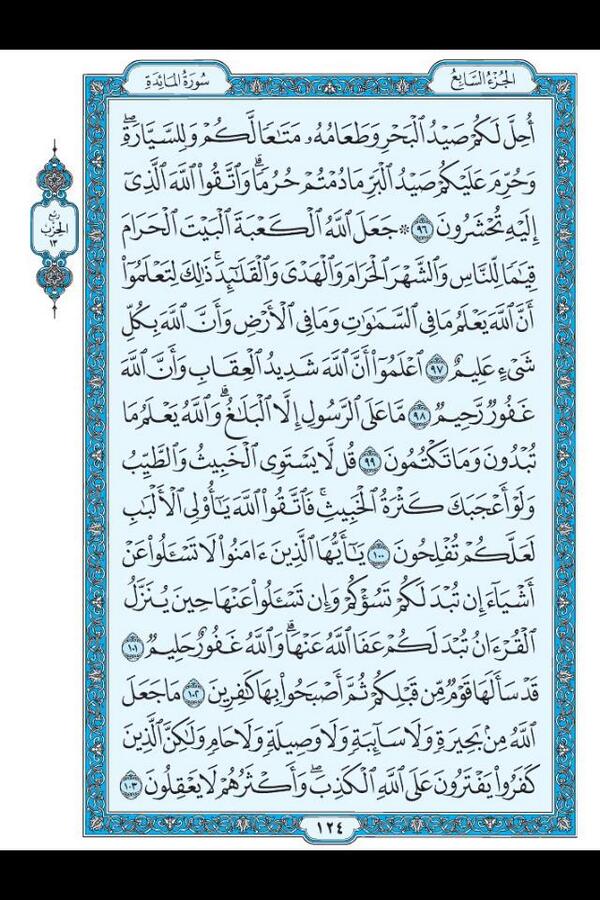 الجزء السابع
سورة المائدة
أُحِلَّ لَكُمْ صَيْدُ ٱلْبَحْرِ وَطَعَامُهُۥ مَتَٰعًا لَّكُمْ وَلِلسَّيَّارَةِۖ
وَحُرِّمَ عَلَيْكُمْ صَيْدُ ٱلْبَرِّ مَا دُمْتُمْ حُرُمًاۗ وَٱتَّقُوا۟ ٱللَّهَ ٱلَّذِىٓ
إِلَيْهِ تُحْشَرُونَ ٩٦ ۞ جَعَلَ ٱللَّهُ ٱلْكَعْبَةَ ٱلْبَيْتَ ٱلْحَرَامَ
قِيَٰمًا لِّلنَّاسِ وَٱلشَّهْرَ ٱلْحَرَامَ وَٱلْهَدْىَ وَٱلْقَلَٰٓئِدَۚ ذَٰلِكَ لِتَعْلَمُوٓا۟
أَنَّ ٱللَّهَ يَعْلَمُ مَا فِى ٱلسَّمَٰوَٰتِ وَمَا فِى ٱلْأَرْضِ وَأَنَّ ٱللَّهَ بِكُلِّ
شَىْءٍ عَلِيمٌ ٩٧ ٱعْلَمُوٓا۟ أَنَّ ٱللَّهَ شَدِيدُ ٱلْعِقَابِ وَأَنَّ ٱللَّهَ
غَفُورٌ رَّحِيمٌ ٩٨ مَّا عَلَى ٱلرَّسُولِ إِلَّا ٱلْبَلَٰغُۗ وَٱللَّهُ يَعْلَمُ مَا
تُبْدُونَ وَمَا تَكْتُمُونَ ٩٩ قُل لَّا يَسْتَوِى ٱلْخَبِيثُ وَٱلطَّيِّبُ
وَلَوْ أَعْجَبَكَ كَثْرَةُ ٱلْخَبِيثِۚ فَٱتَّقُوا۟ ٱللَّهَ يَٰٓأُو۟لِى ٱلْأَلْبَٰبِ
لَعَلَّكُمْ تُفْلِحُونَ ١٠٠ يَٰٓأَيُّهَا ٱلَّذِينَ ءَامَنُوا۟ لَا تَسْـَٔلُوا۟ عَنْ
أَشْيَآءَ إِن تُبْدَ لَكُمْ تَسُؤْكُمْ وَإِن تَسْـَٔلُوا۟ عَنْهَا حِينَ يُنَزَّلُ
ٱلْقُرْءَانُ تُبْدَ لَكُمْ عَفَا ٱللَّهُ عَنْهَاۗ وَٱللَّهُ غَفُورٌ حَلِيمٌ ١٠١
قَدْ سَأَلَهَا قَوْمٌ مِّن قَبْلِكُمْ ثُمَّ أَصْبَحُوا۟ بِهَا كَٰفِرِينَ ١٠٢ مَا جَعَلَ
ٱللَّهُ مِنۢ بَحِيرَةٍ وَلَا سَآئِبَةٍ وَلَا وَصِيلَةٍ وَلَا حَامٍ وَلَٰكِنَّ ٱلَّذِينَ
كَفَرُوا۟ يَفْتَرُونَ عَلَى ٱللَّهِ ٱلْكَذِبَۖ وَأَكْثَرُهُمْ لَا يَعْقِلُونَ ١٠٣
ربع
الحزب
١٣
١٢٤